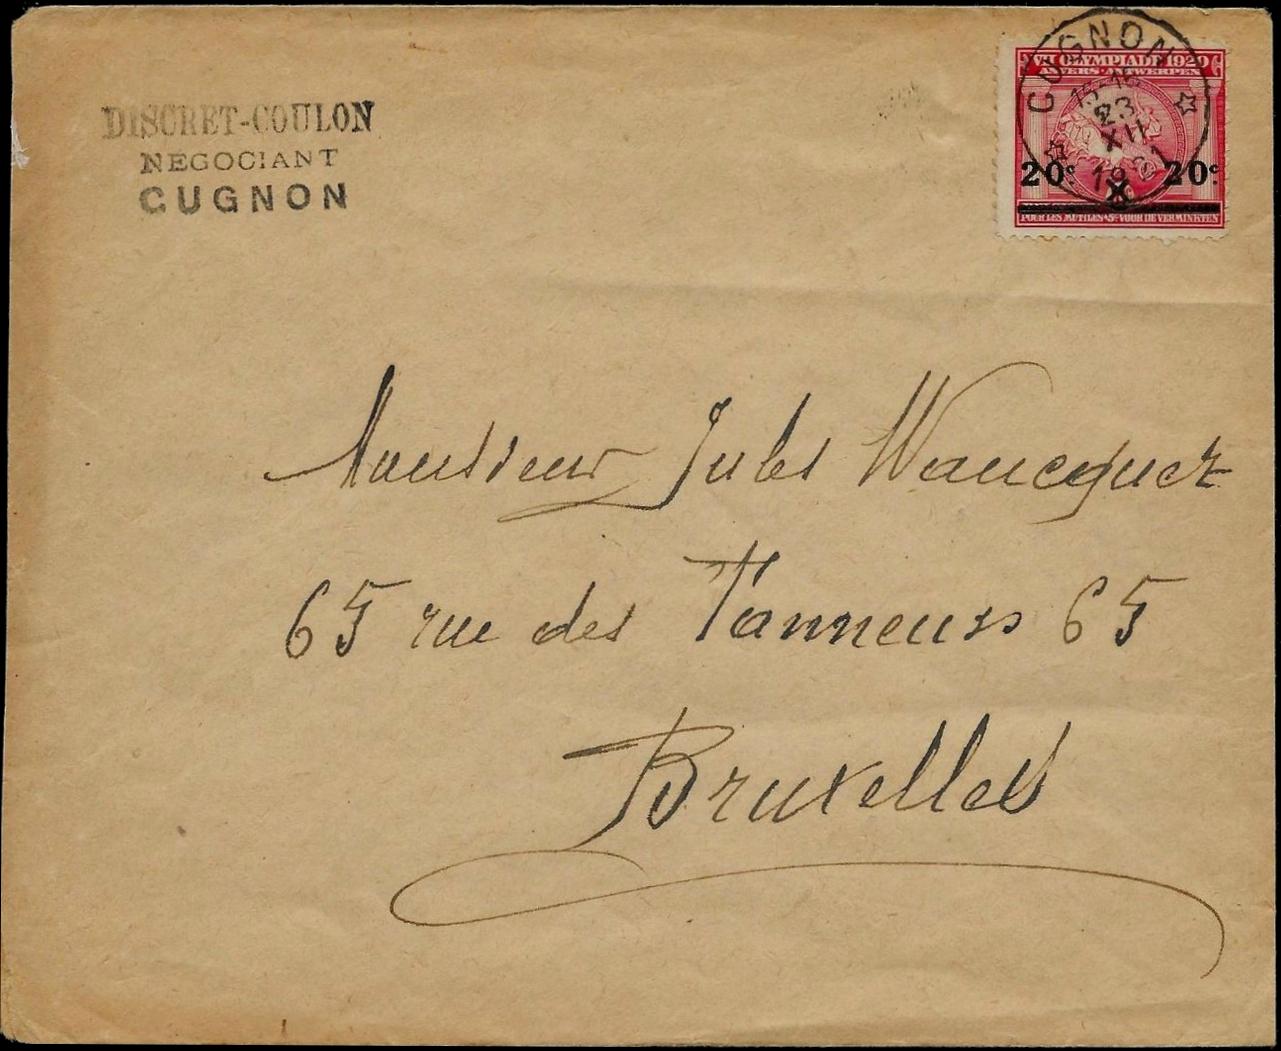 DISCRET-COULON
NEGOCIANT
CUGNON
VIIe OLYMPIADE 1920
ANVERS-ANTWERPEN
CUGNON
23
XII
20c 20c
POUR LES MUTILES•5c•VOOR DE VERMINKTEN
Monsieur Jules Waucquez
65 rue des Tanneurs 65
Bruxelles